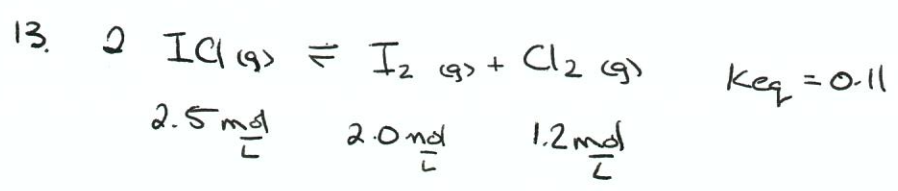 13. 2 ICl (g) ⇌ I₂ (g) + Cl₂ (g) Keq = 0.11
2.5 mol/L 2.0 mol/L 1.2 mol/L